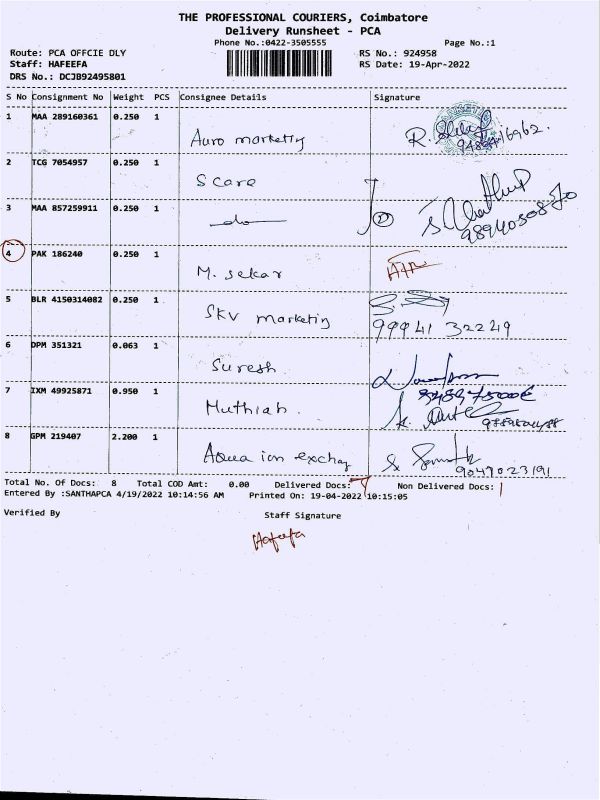 THE PROFESSIONAL COURIERS, Coimbatore
Delivery Runsheet - PCA
Phone No.:0422-3505555
Page No.:1
Route: PCA OFFCIE DLY
RS No.: 924958
Staff: HAFEEFA
RS Date: 19-Apr-2022
DRS No.: DCJB92495801
S No Consignment No Weight PCS Consignee Details Signature
1 MAA 289160361 0.250 1
Auro marketing
2 TCG 7054957 0.250 1
S care
3 MAA 857259911 0.250 1
do
4 PAK 186240 0.250 1
M. sekar
5 BLR 4150314082 0.250 1
SKV marketing
99941 32249
6 DPM 351321 0.063 1
Suresh
7 IXM 49925871 0.950 1
Muthiah.
8 GPM 219407 2.200 1
Aqua ion exchag
9047023191
Total No. Of Docs: 8 Total COD Amt: 0.00 Delivered Docs: 7 Non Delivered Docs: 1
Entered By :SANTHAPCA 4/19/2022 10:14:56 AM Printed On: 19-04-2022 10:15:05
Verified By
Staff Signature
Hafeefa